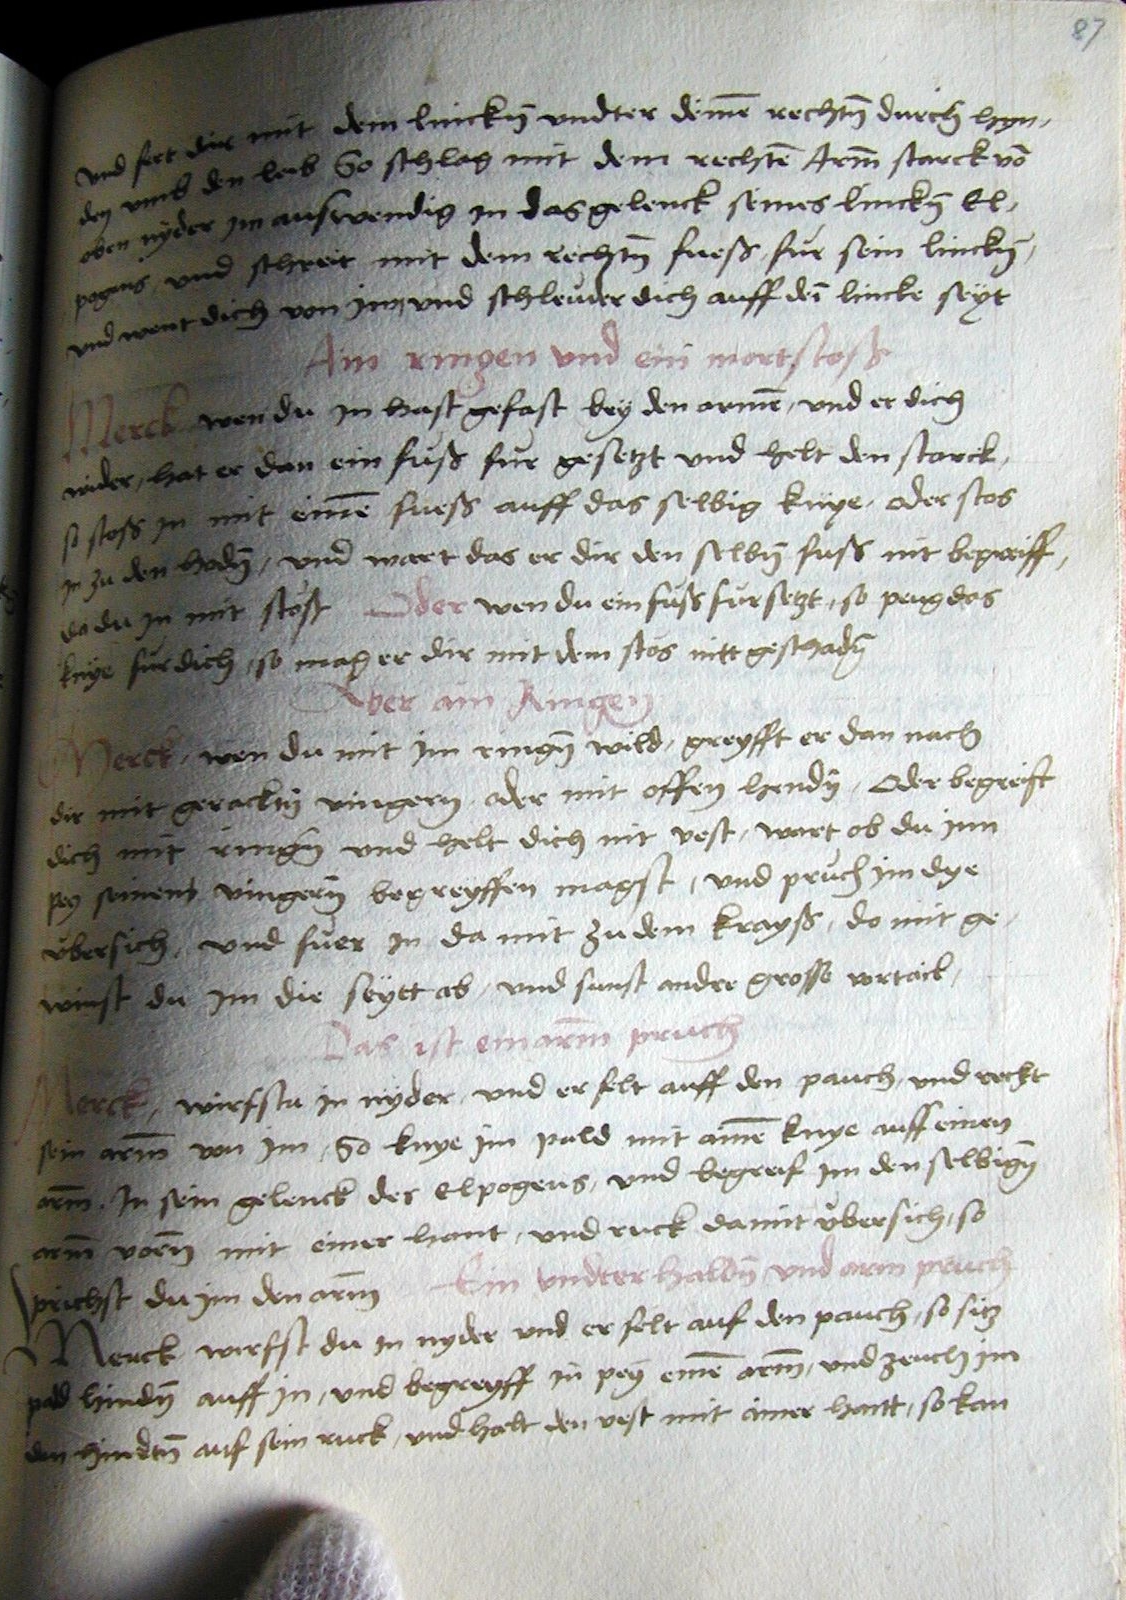 87
und fert dir mit dem linckn̄ undter deinē rechtn̄ durch hyn,
den umb den leib So schlag mit dem rechtē Arm̄ starck vō
oben nyder im auswendig in das gelenck seines linckn̄ El,
pogens, und schreit mit dem rechtn̄ fuess, fur sein linckn̄,
und went dich von im, und schleuder dich auff dei lincke seyt
Ain ringen und ein mortstoss
Merck wen du in hast gefast bey den armē, und er dich
wider, hat er dan ein fuss fur gesetzt und helt den starck,
so stoss in mit einē fuess auff das selbig knye, oder stos
in zu den hodn̄, und wart das er dir den selbn̄ fuss nit begreiff,
da du in mit stost Oder wen du ein fuss fursetzt, so peug das
knye fur dich, so mag er dir mit dem stos nitt geschadn̄
Aber ain Ringen
Merck, wen du mit im ringn̄ wild, greyfft er dan nach
dir mit geracktn̄ vingern, oder mit offen hendn̄, Oder begreift
dich mit ringn̄ und helt dich nit vest, wart ob du inn
pey seinem vingern̄ begreyffen magst, und pruch im dye
ubersich, und fuer in da mit zu dem krayss, do mit ge,
winst du im die seytt ab, und sunst ander grosse vortail,
Das ist ein arm̄ pruch
Merck, wirfstu in nyder, und er felt auff den pauch, und reckt
sein arm̄ von im, So knye im pald mit ainē knye auff einen
arm̄, In sein gelenck des elpogens, und begreif im den selbign̄
arm̄ vorn̄ mit einer hant, und ruck damit ubersich, so
prichst du im den arm̄ Ein undterhaldn̄ und arm pruch
Merck wirfst du in nyder und er felt auf den pauch, so sitz
pald hindn̄ auff in, und begreyff in pey einē arm̄, und zeuch im
den hindtn̄ auf sein ruck, und halt den vest mit ainer hantt, so kan